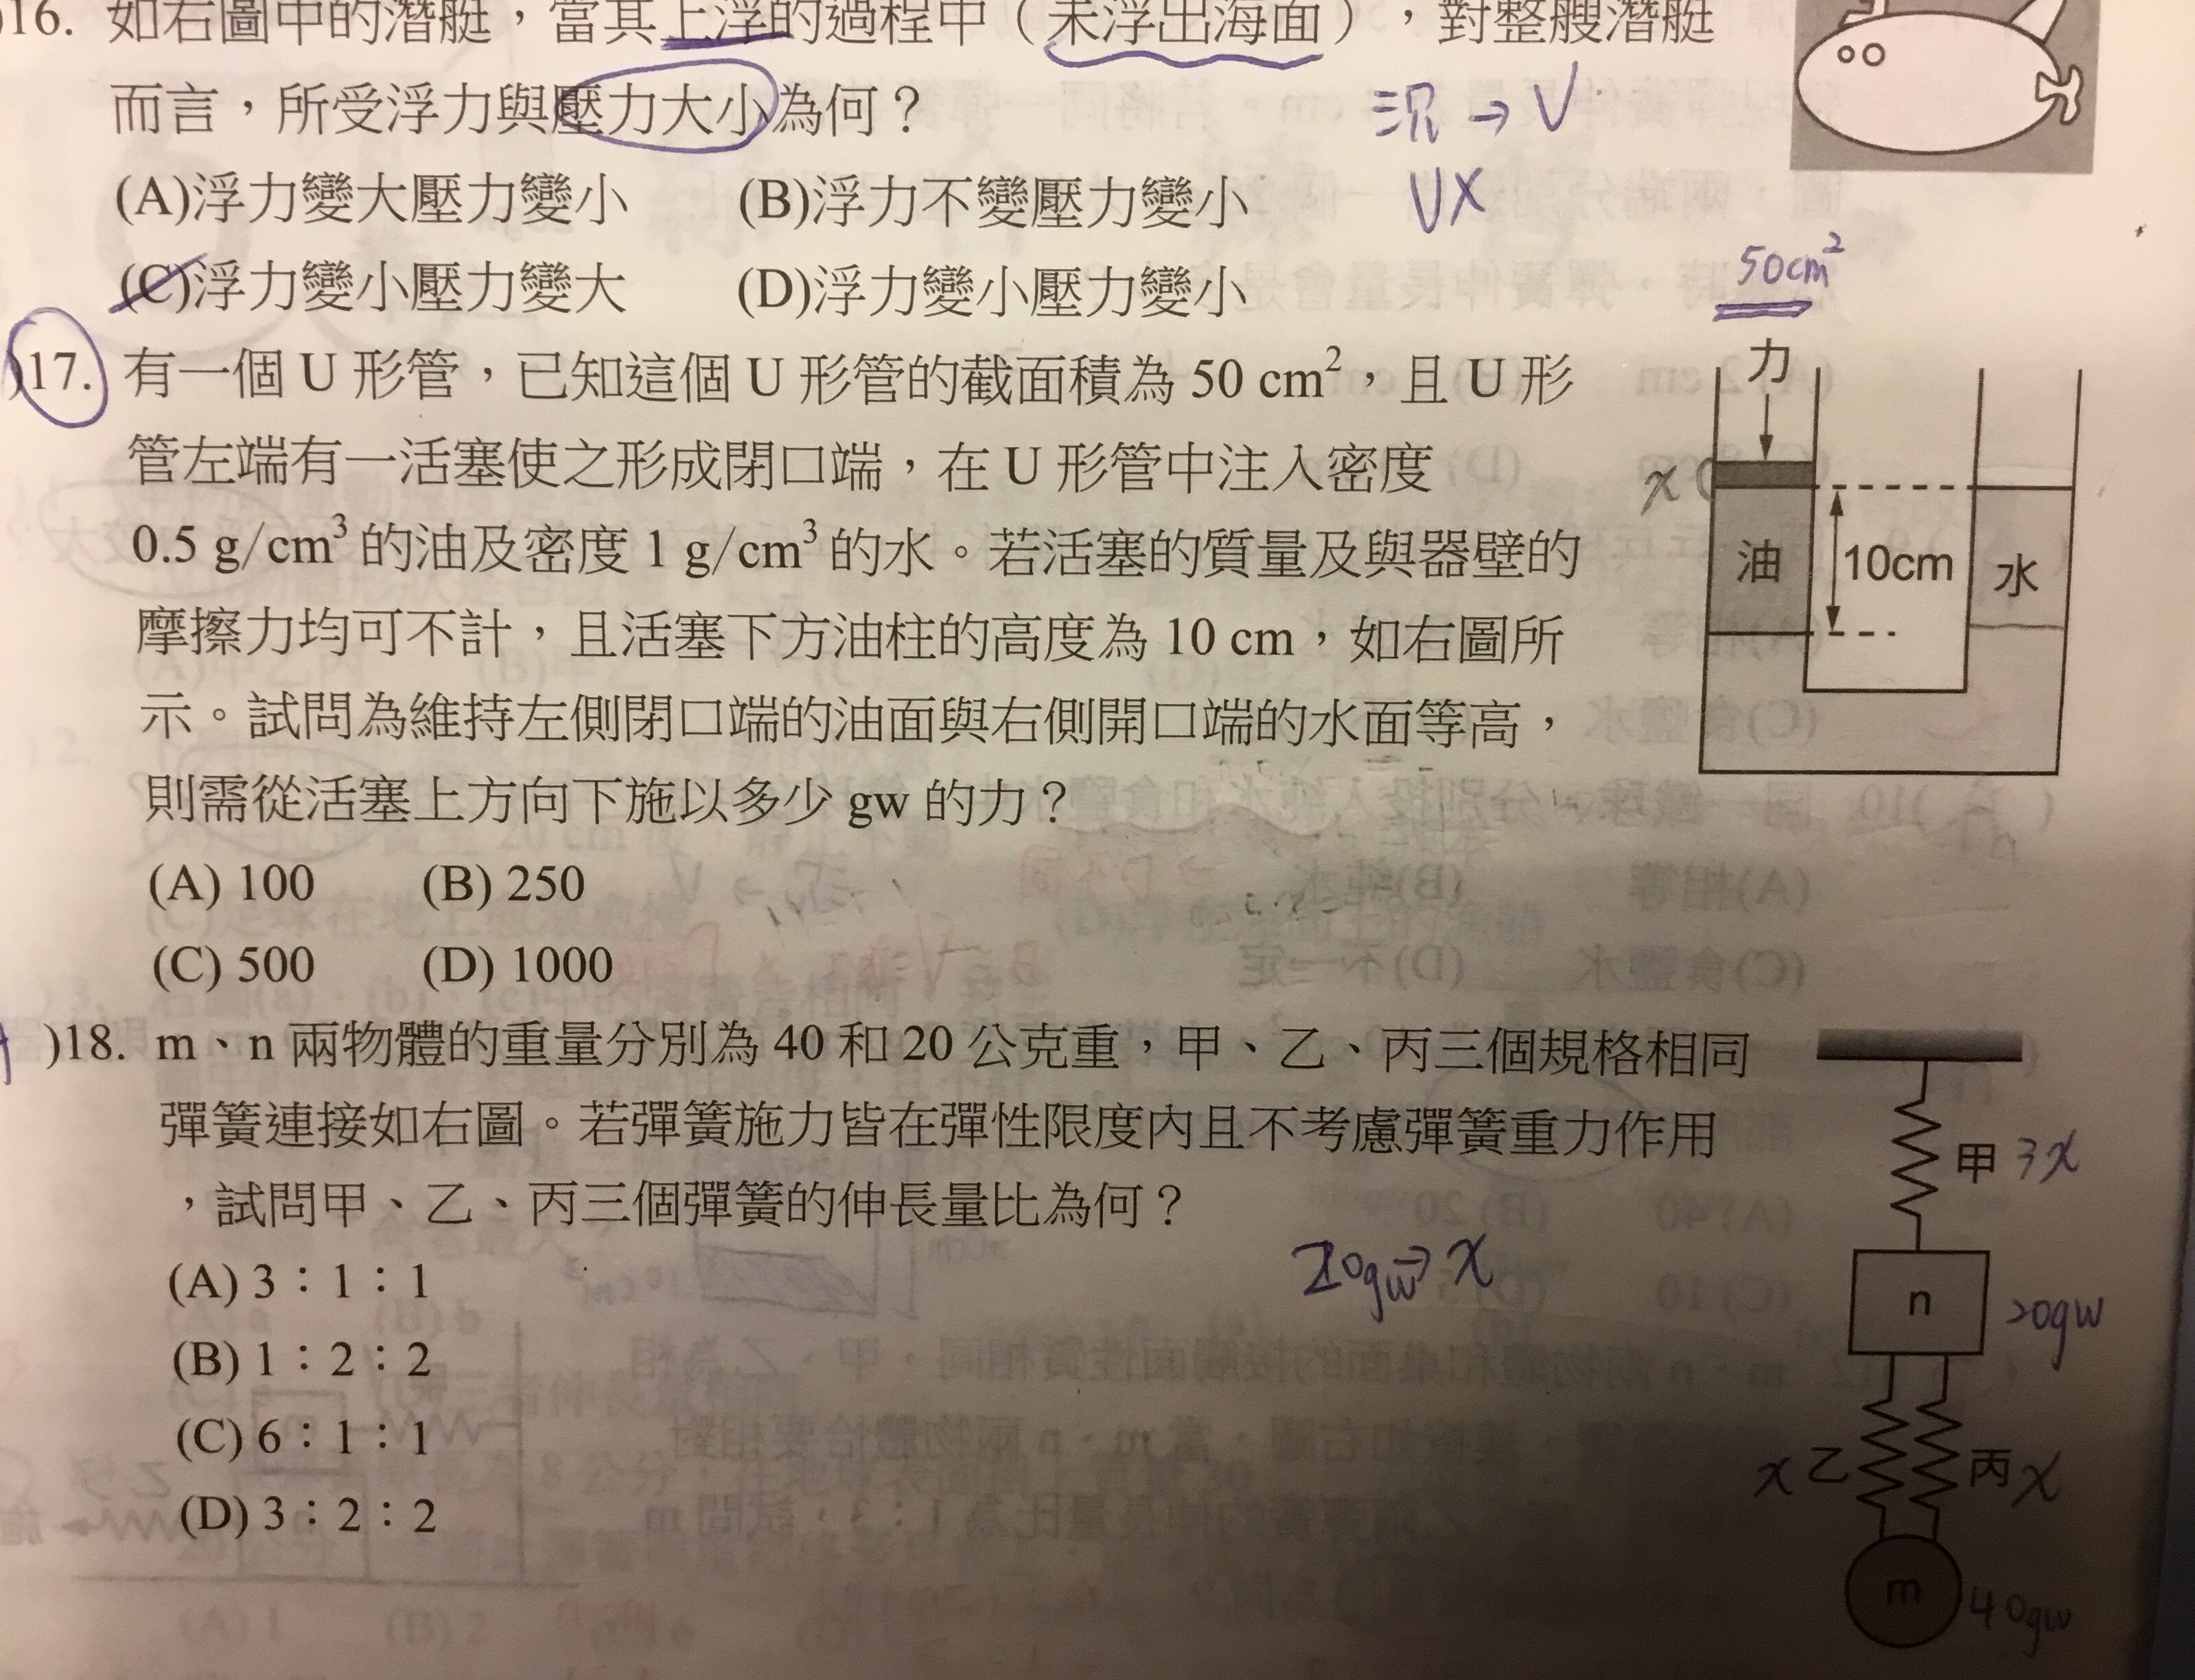 )16. 如右圖中的潛艇，當其上浮的過程中（未浮出海面），對整艘潛艇
而言，所受浮力與壓力大小為何？
沉→V
VX
(A)浮力變大壓力變小 (B)浮力不變壓力變小
(C)浮力變小壓力變大 (D)浮力變小壓力變小
)17. 有一個 U 形管，已知這個 U 形管的截面積為 50 cm²，且 U 形
管左端有一活塞使之形成閉口端，在 U 形管中注入密度
0.5 g/cm³ 的油及密度 1 g/cm³ 的水。若活塞的質量及與器壁的
摩擦力均可不計，且活塞下方油柱的高度為 10 cm，如右圖所
示。試問為維持左側閉口端的油面與右側開口端的水面等高，
則需從活塞上方向下施以多少 gw 的力？
(A) 100 (B) 250
(C) 500 (D) 1000
50cm²
力
x
油
10cm
水
)18. m、n 兩物體的重量分別為 40 和 20 公克重，甲、乙、丙三個規格相同
彈簧連接如右圖。若彈簧施力皆在彈性限度內且不考慮彈簧重力作用
，試問甲、乙、丙三個彈簧的伸長量比為何？
(A) 3：1：1
(B) 1：2：2
(C) 6：1：1
(D) 3：2：2
20gw→x
甲 3x
n 20gw
x 乙 丙 x
m 40gw